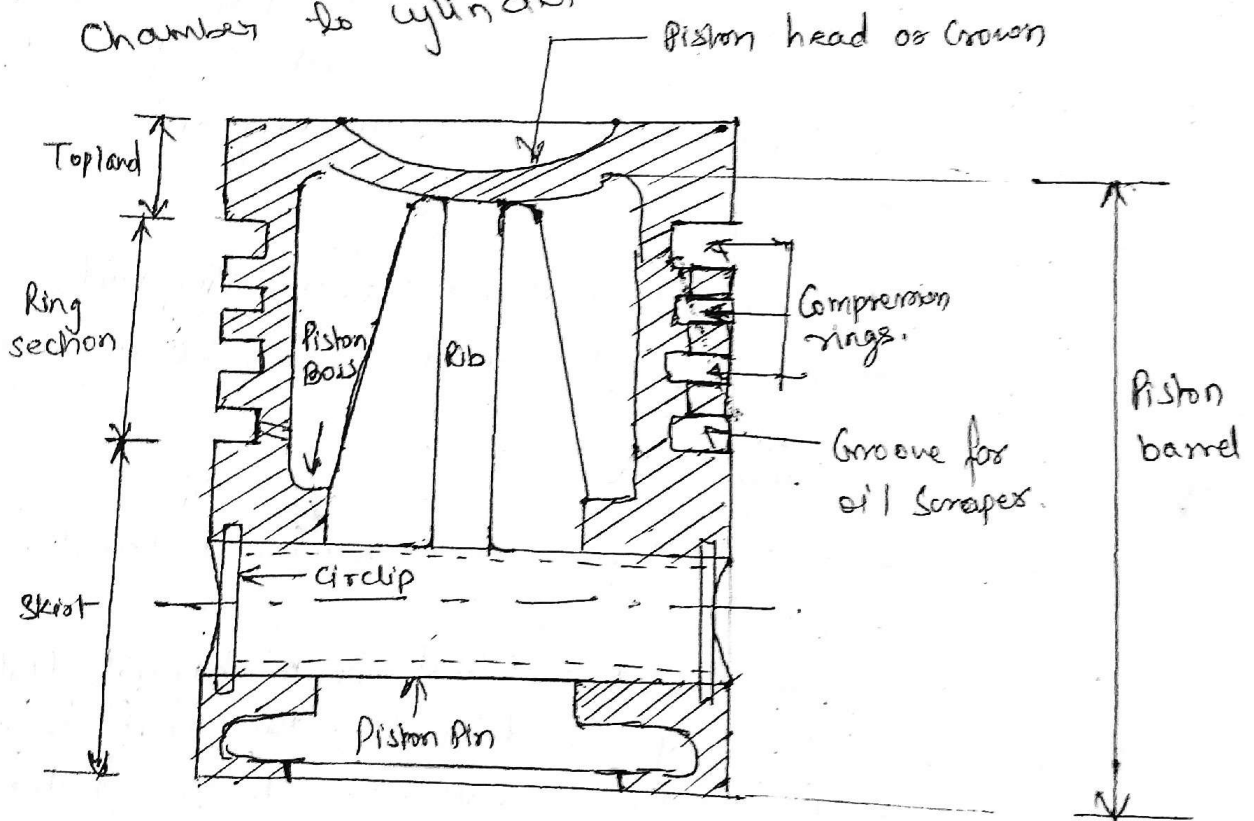 Chamber to cylinder
Piston head or Crown
Top land
Ring
section
Piston
Boss
Rib
Compression
rings.
Piston
barrel
Groove for
oil Scraper.
Circlip
Skirt
Piston Pin